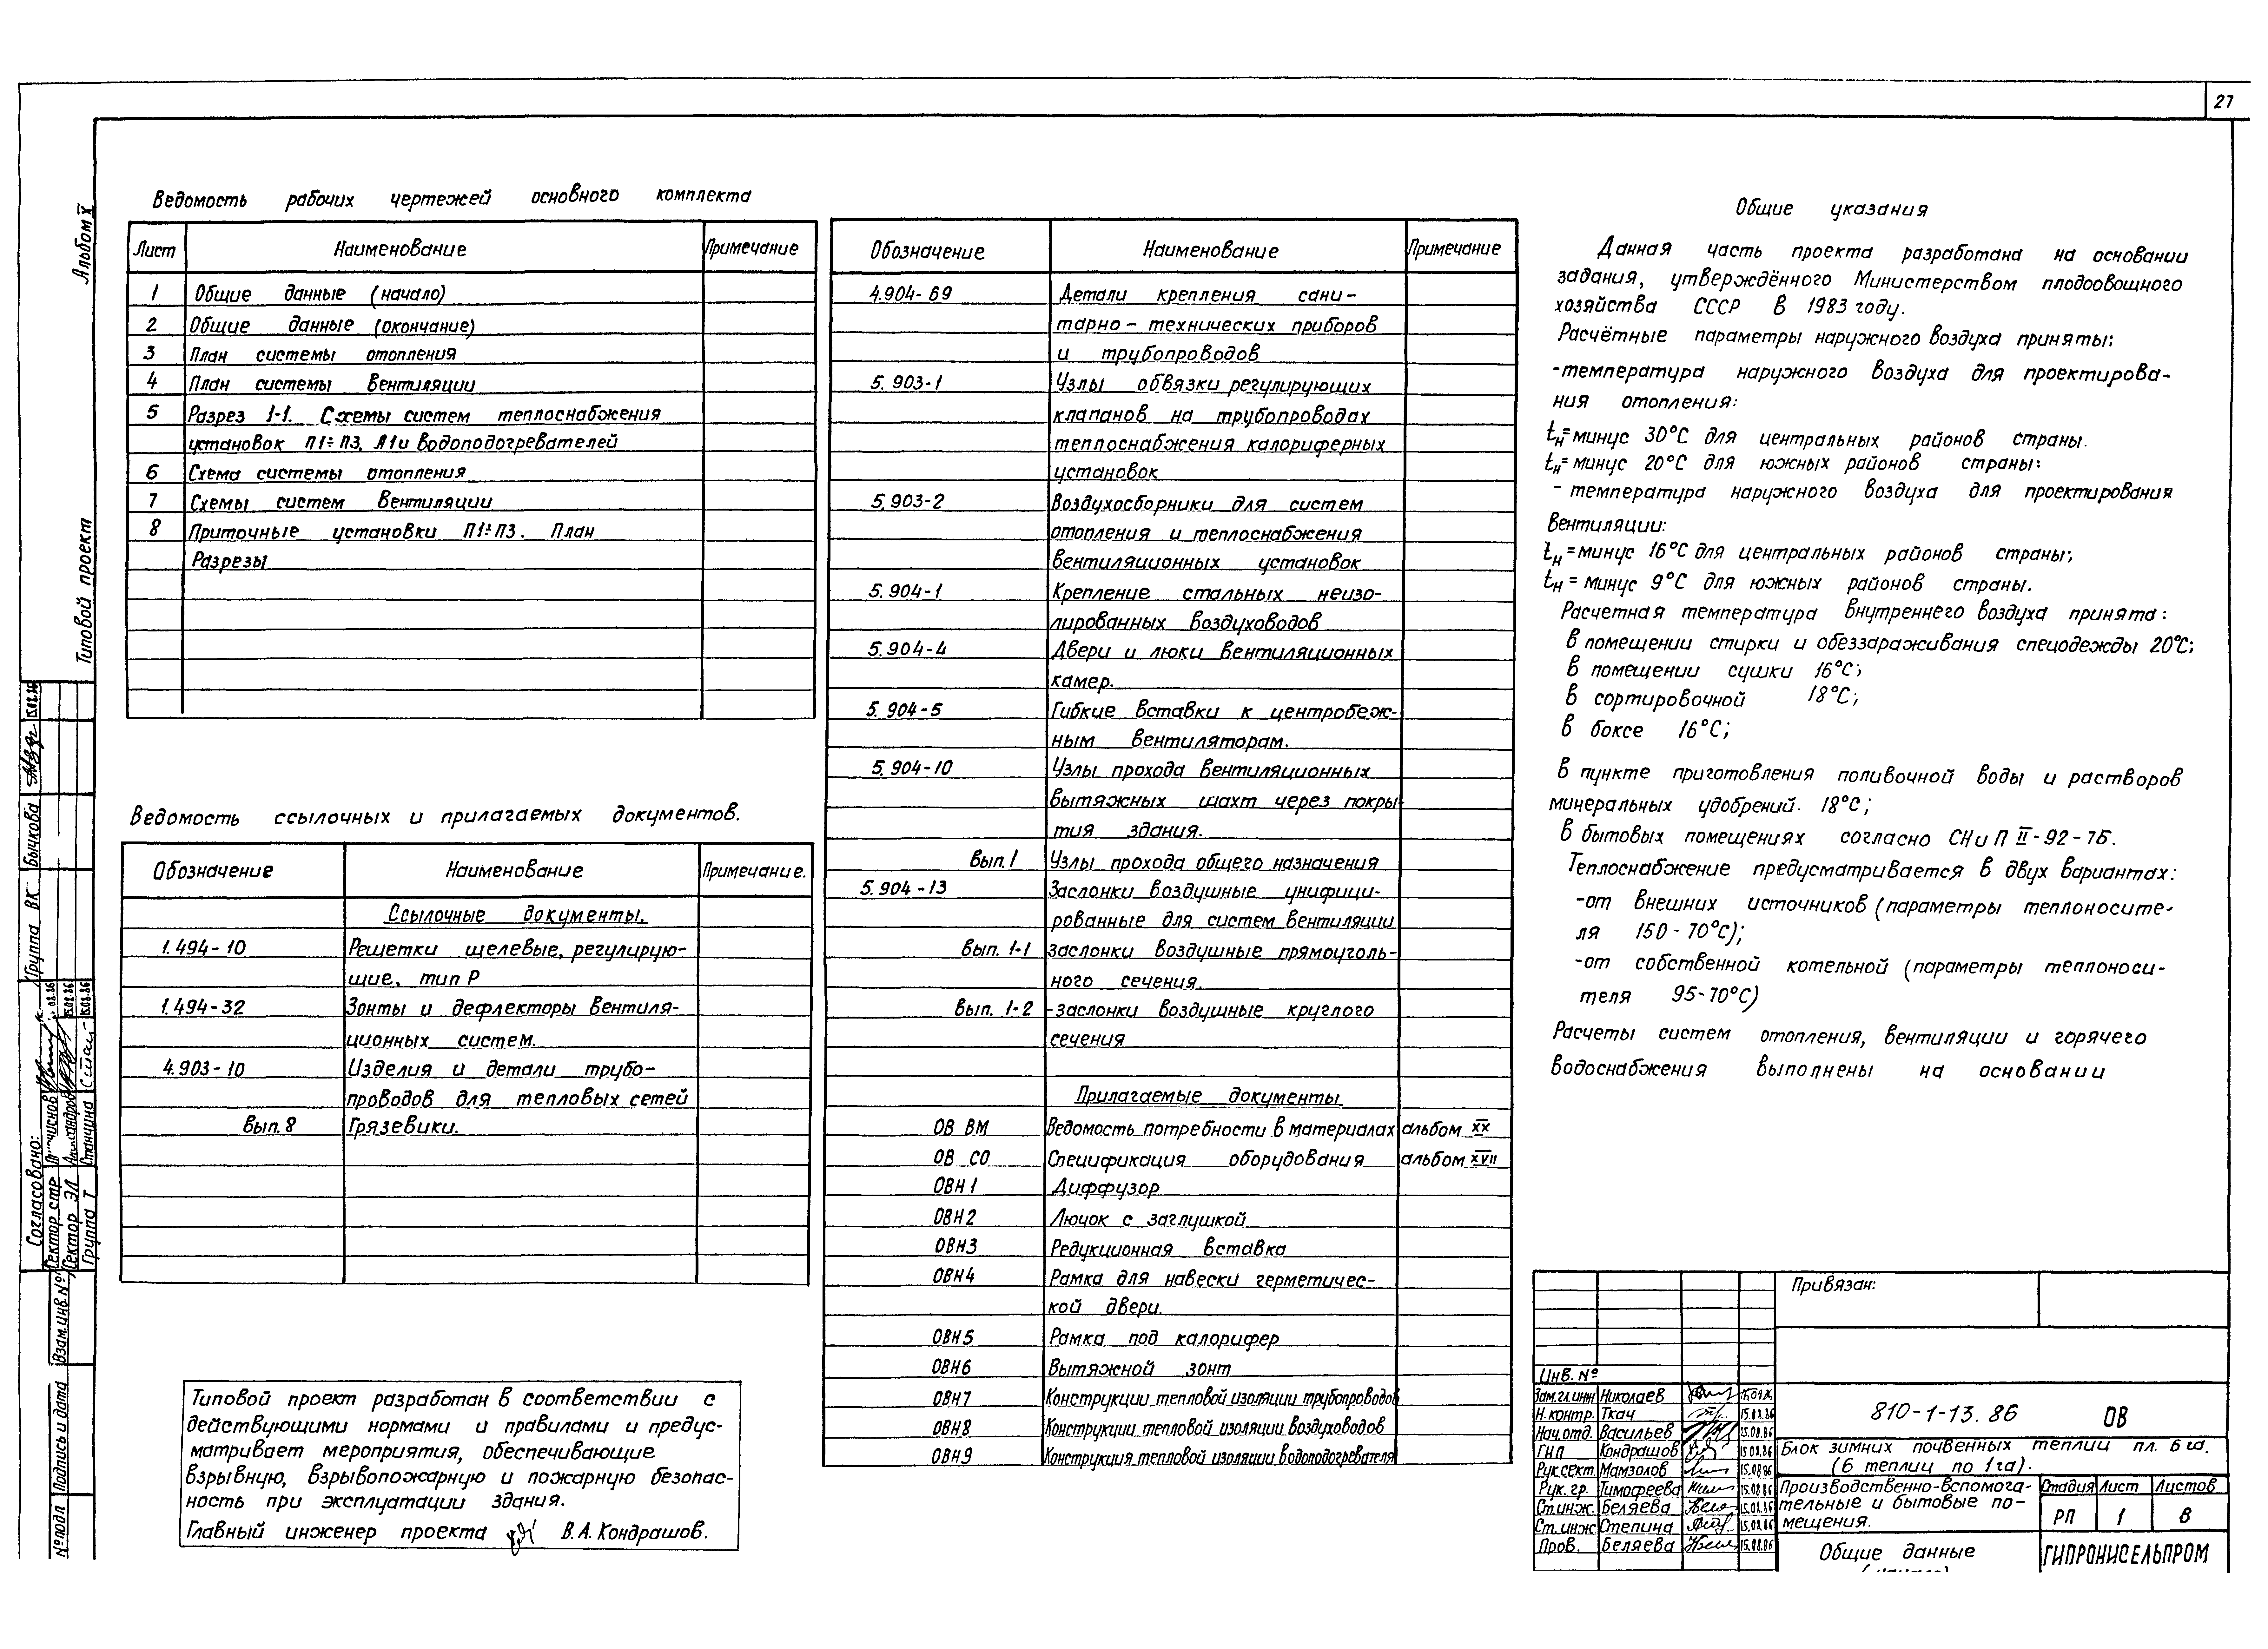 27
Альбом X
Типовой проект
Ведомость рабочих чертежей основного комплекта
Лист Наименование Примечание
1 Общие данные (начало)
2 Общие данные (окончание)
3 План системы отопления
4 План системы вентиляции
5 Разрез 1-1. Схемы систем теплоснабжения
установок П1÷П3, А1 и водоподогревателей
6 Схема системы отопления
7 Схемы систем вентиляции
8 Приточные установки П1÷П3. План
Разрезы
Ведомость ссылочных и прилагаемых документов.
Обозначение Наименование Примечание.
Ссылочные документы.
1.494-10 Решетки щелевые, регулирую-
щие, тип Р
1.494-32 Зонты и дефлекторы вентиля-
ционных систем.
4.903-10 Изделия и детали трубо-
проводов для тепловых сетей
Вып. 8 Грязевики.
Типовой проект разработан в соответствии с
действующими нормами и правилами и предус-
матривает мероприятия, обеспечивающие
взрывную, взрывопожарную и пожарную безопас-
ность при эксплуатации здания.
Главный инженер проекта В.А. Кондрашов.
Обозначение Наименование Примечание
4.904-69 Детали крепления сани-
тарно-технических приборов
и трубопроводов
5.903-1 Узлы обвязки регулирующих
клапанов на трубопроводах
теплоснабжения калориферных
установок
5.903-2 Воздухосборники для систем
отопления и теплоснабжения
вентиляционных установок
5.904-1 Крепление стальных неизо-
лированных воздуховодов
5.904-4 Двери и люки вентиляционных
камер.
5.904-5 Гибкие вставки к центробеж-
ным вентиляторам.
5.904-10 Узлы прохода вентиляционных
вытяжных шахт через покры-
тия здания.
Вып. 1 Узлы прохода общего назначения
5.904-13 Заслонки воздушные унифици-
рованные для систем вентиляции
Вып. 1-1 заслонки воздушные прямоуголь-
ного сечения.
Вып. 1-2 -заслонки воздушные круглого
сечения
Прилагаемые документы
ОВ ВМ Ведомость потребности в материалах альбом XX
ОВ СО Спецификация оборудования альбом XVII
ОВН1 Диффузор
ОВН2 Лючок с заглушкой
ОВН3 Редукционная вставка
ОВН4 Рамка для навески герметичес-
кой двери.
ОВН5 Рамка под калорифер
ОВН6 Вытяжной зонт
ОВН7 Конструкции тепловой изоляции трубопроводов
ОВН8 Конструкции тепловой изоляции воздуховодов
ОВН9 Конструкция тепловой изоляции водоподогревателя
Общие указания
Данная часть проекта разработана на основании
задания, утверждённого Министерством плодоовощного
хозяйства СССР в 1983 году.
Расчётные параметры наружного воздуха приняты:
-температура наружного воздуха для проектирова-
ния отопления:
tн=минус 30°С для центральных районов страны.
tн=минус 20°С для южных районов страны:
- температура наружного воздуха для проектирования
вентиляции:
tн=минус 16°С для центральных районов страны;
tн=минус 9°С для южных районов страны.
Расчетная температура внутреннего воздуха принята:
в помещении стирки и обеззараживания спецодежды 20°С;
в помещении сушки 16°С;
в сортировочной 18°С;
в боксе 16°С;
в пункте приготовления поливочной воды и растворов
минеральных удобрений. 18°С;
в бытовых помещениях согласно СНиП II-92-76.
Теплоснабжение предусматривается в двух вариантах:
-от внешних источников (параметры теплоносите-
ля 150-70°С);
-от собственной котельной (параметры теплоноси-
теля 95-70°С)
Расчеты систем отопления, вентиляции и горячего
водоснабжения выполнены на основании
Привязан:
Инв. №
Зам.гл.инж Николаев
Н.контр. Ткач 15.08.86
Нач.отд. Васильев 15.08.86
ГИП Кондрашов 15.08.86
Рук.сект. Мамзолов 15.08.86
Рук. гр. Тимофеева 15.08.86
Ст.инж. Беляева 15.08.86
Ст.инж Степина 15.08.86
Пров. Беляева 15.08.86
810-1-13.86 ОВ
Блок зимних почвенных теплиц пл. 6 га.
(6 теплиц по 1 га).
Производственно-вспомога-
тельные и бытовые по-
мещения.
Стадия Лист Листов
РП 1 8
Общие данные
(начало)
ГИПРОНИСЕЛЬПРОМ
Согласовано:
Сектор стр
Сектор ЭЛ
Группа Т Станчина 15.08.86
Группа ВК Бычкова 15.08.86
Взам.инв.№
Подпись и дата
№ подл